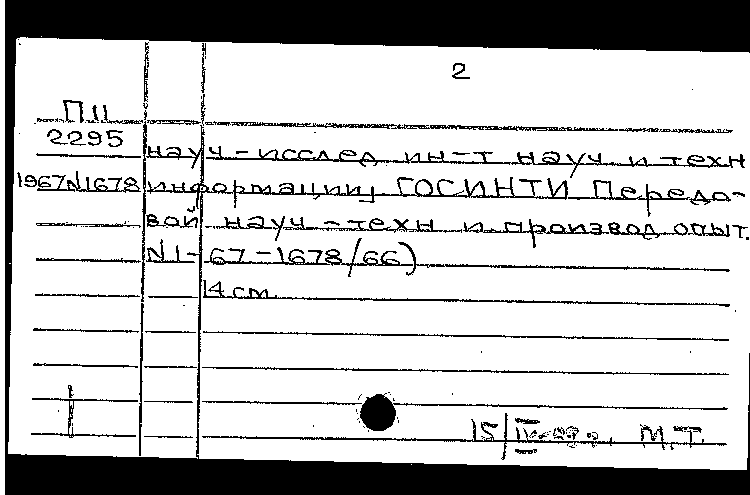 2
П 11
2295
науч-исслед ин-т науч. и техн
1967 N1678 информации, ГОСИНТИ. Передо-
вой науч-техн и производ опыт.
N 1-67-1678/66)
14 см.
15/IV М.Т.